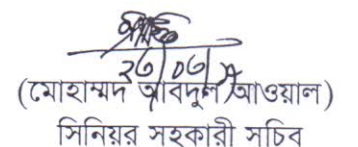 (মোহাম্মদ আবদুল আওয়াল)
সিনিয়র সহকারী সচিব